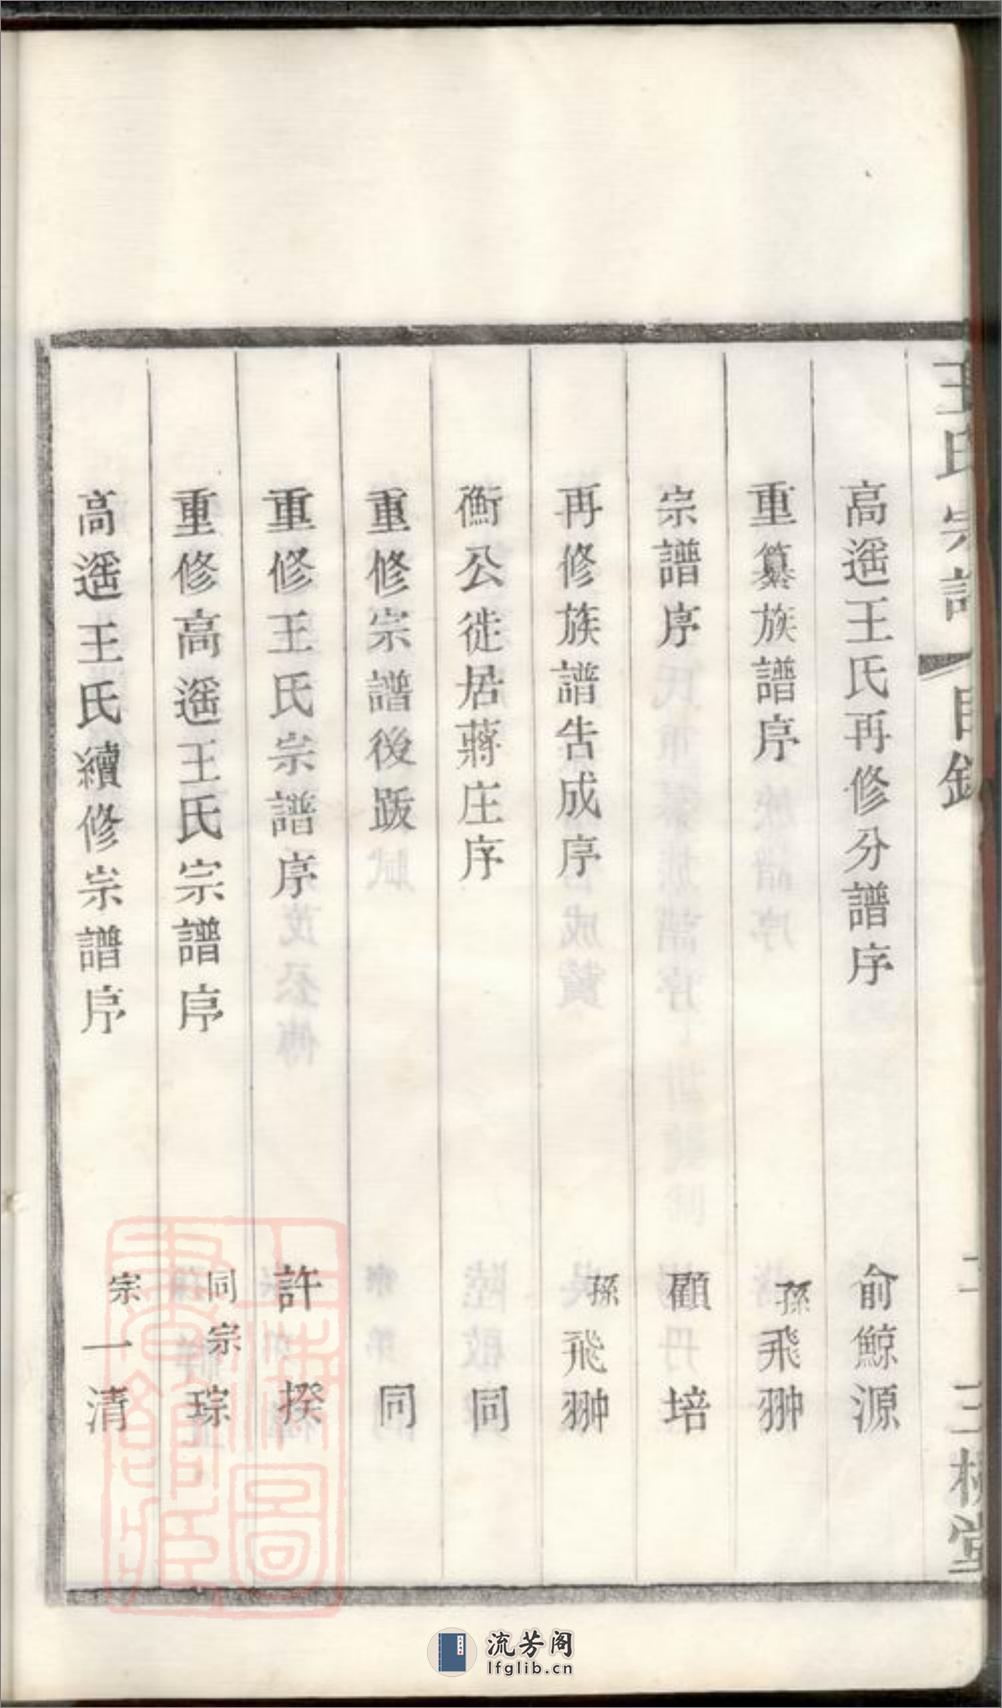 王氏宗譜 目錄 二 三槐堂
高遥王氏再修分譜序 俞鯨源
重纂族譜序 孫飛翀
宗譜序 顧培
再修族譜告成序 孫飛翀
衡公徙居蔣庄序 同
重修宗譜後跋 同
重修王氏宗譜序 許揆
重修高遥王氏宗譜序 同宗琮
高遥王氏續修宗譜序 宗一清
上海圖書館藏
流芳阁
lfglib.cn